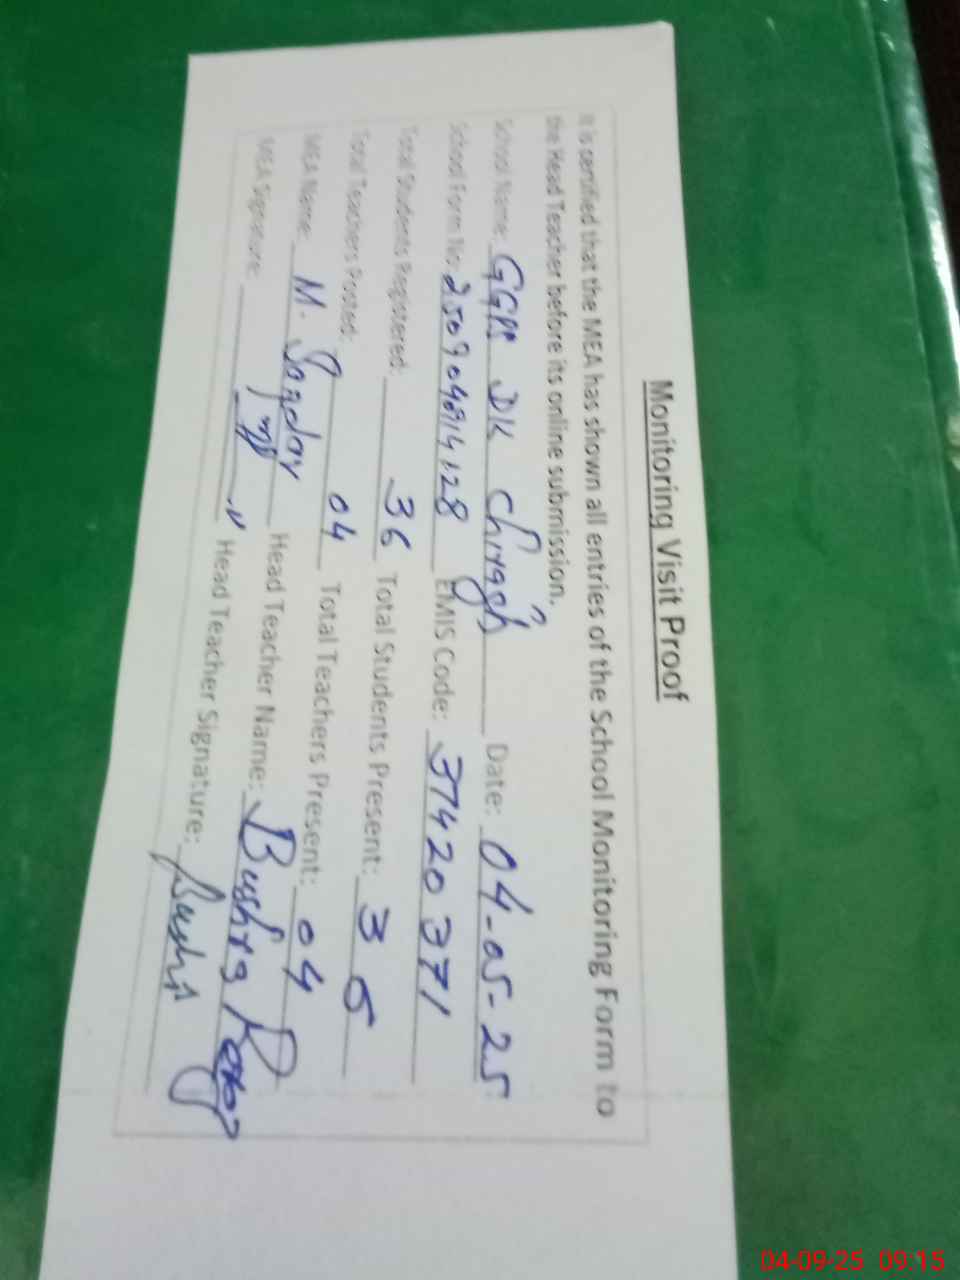 Monitoring Visit Proof
It is certified that the MEA has shown all entries of the School Monitoring Form to
the Head Teacher before its online submission.
School Name: GGPS DK Chiragh Date: 04-05-25
School Form No: EMIS Code: 37420371
Total Students Registered: 36 Total Students Present: 35
Total Teachers Posted: 04 Total Teachers Present: 04
MEA Name: M. Head Teacher Name: Bushra
MEA Signature: Head Teacher Signature: Bushra
04-09-25 09:15